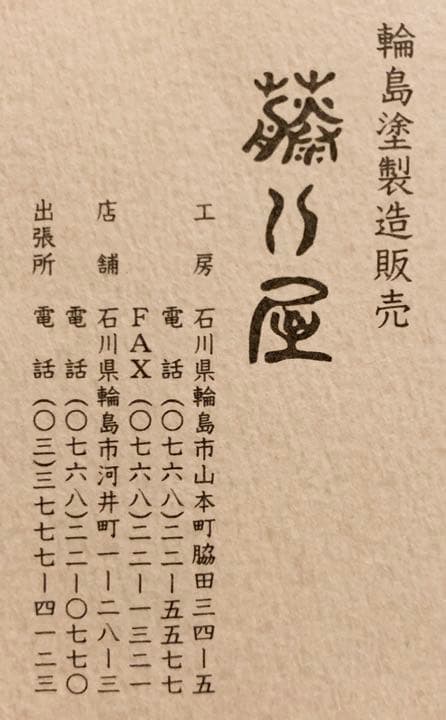 輪島塗製造販売
藤八屋
工房 石川県輪島市山本町脇田三四ー五
電話(〇七六八)二二ー五五七七
FAX(〇七六八)二二ー一三二一
店舗 石川県輪島市河井町一ー二八ー三
電話(〇七六八)二二ー〇七七〇
出張所 電話(〇三)三七七七ー四一二三